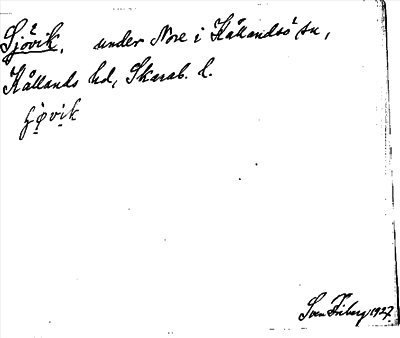 Sjövik, under Nore i Kållandsö sn,
Kållands hd, Skarab. l.
Sven Friberg 1927.